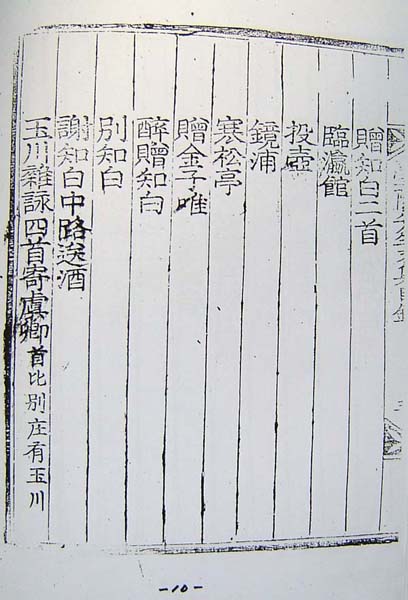 贈知白二首
臨瀛館
投壺
鏡浦
寒松亭
贈金子唯
醉贈知白
別知白
謝知白中路送酒
玉川雜詠四首寄虞卿首比別庄有玉川
-10-